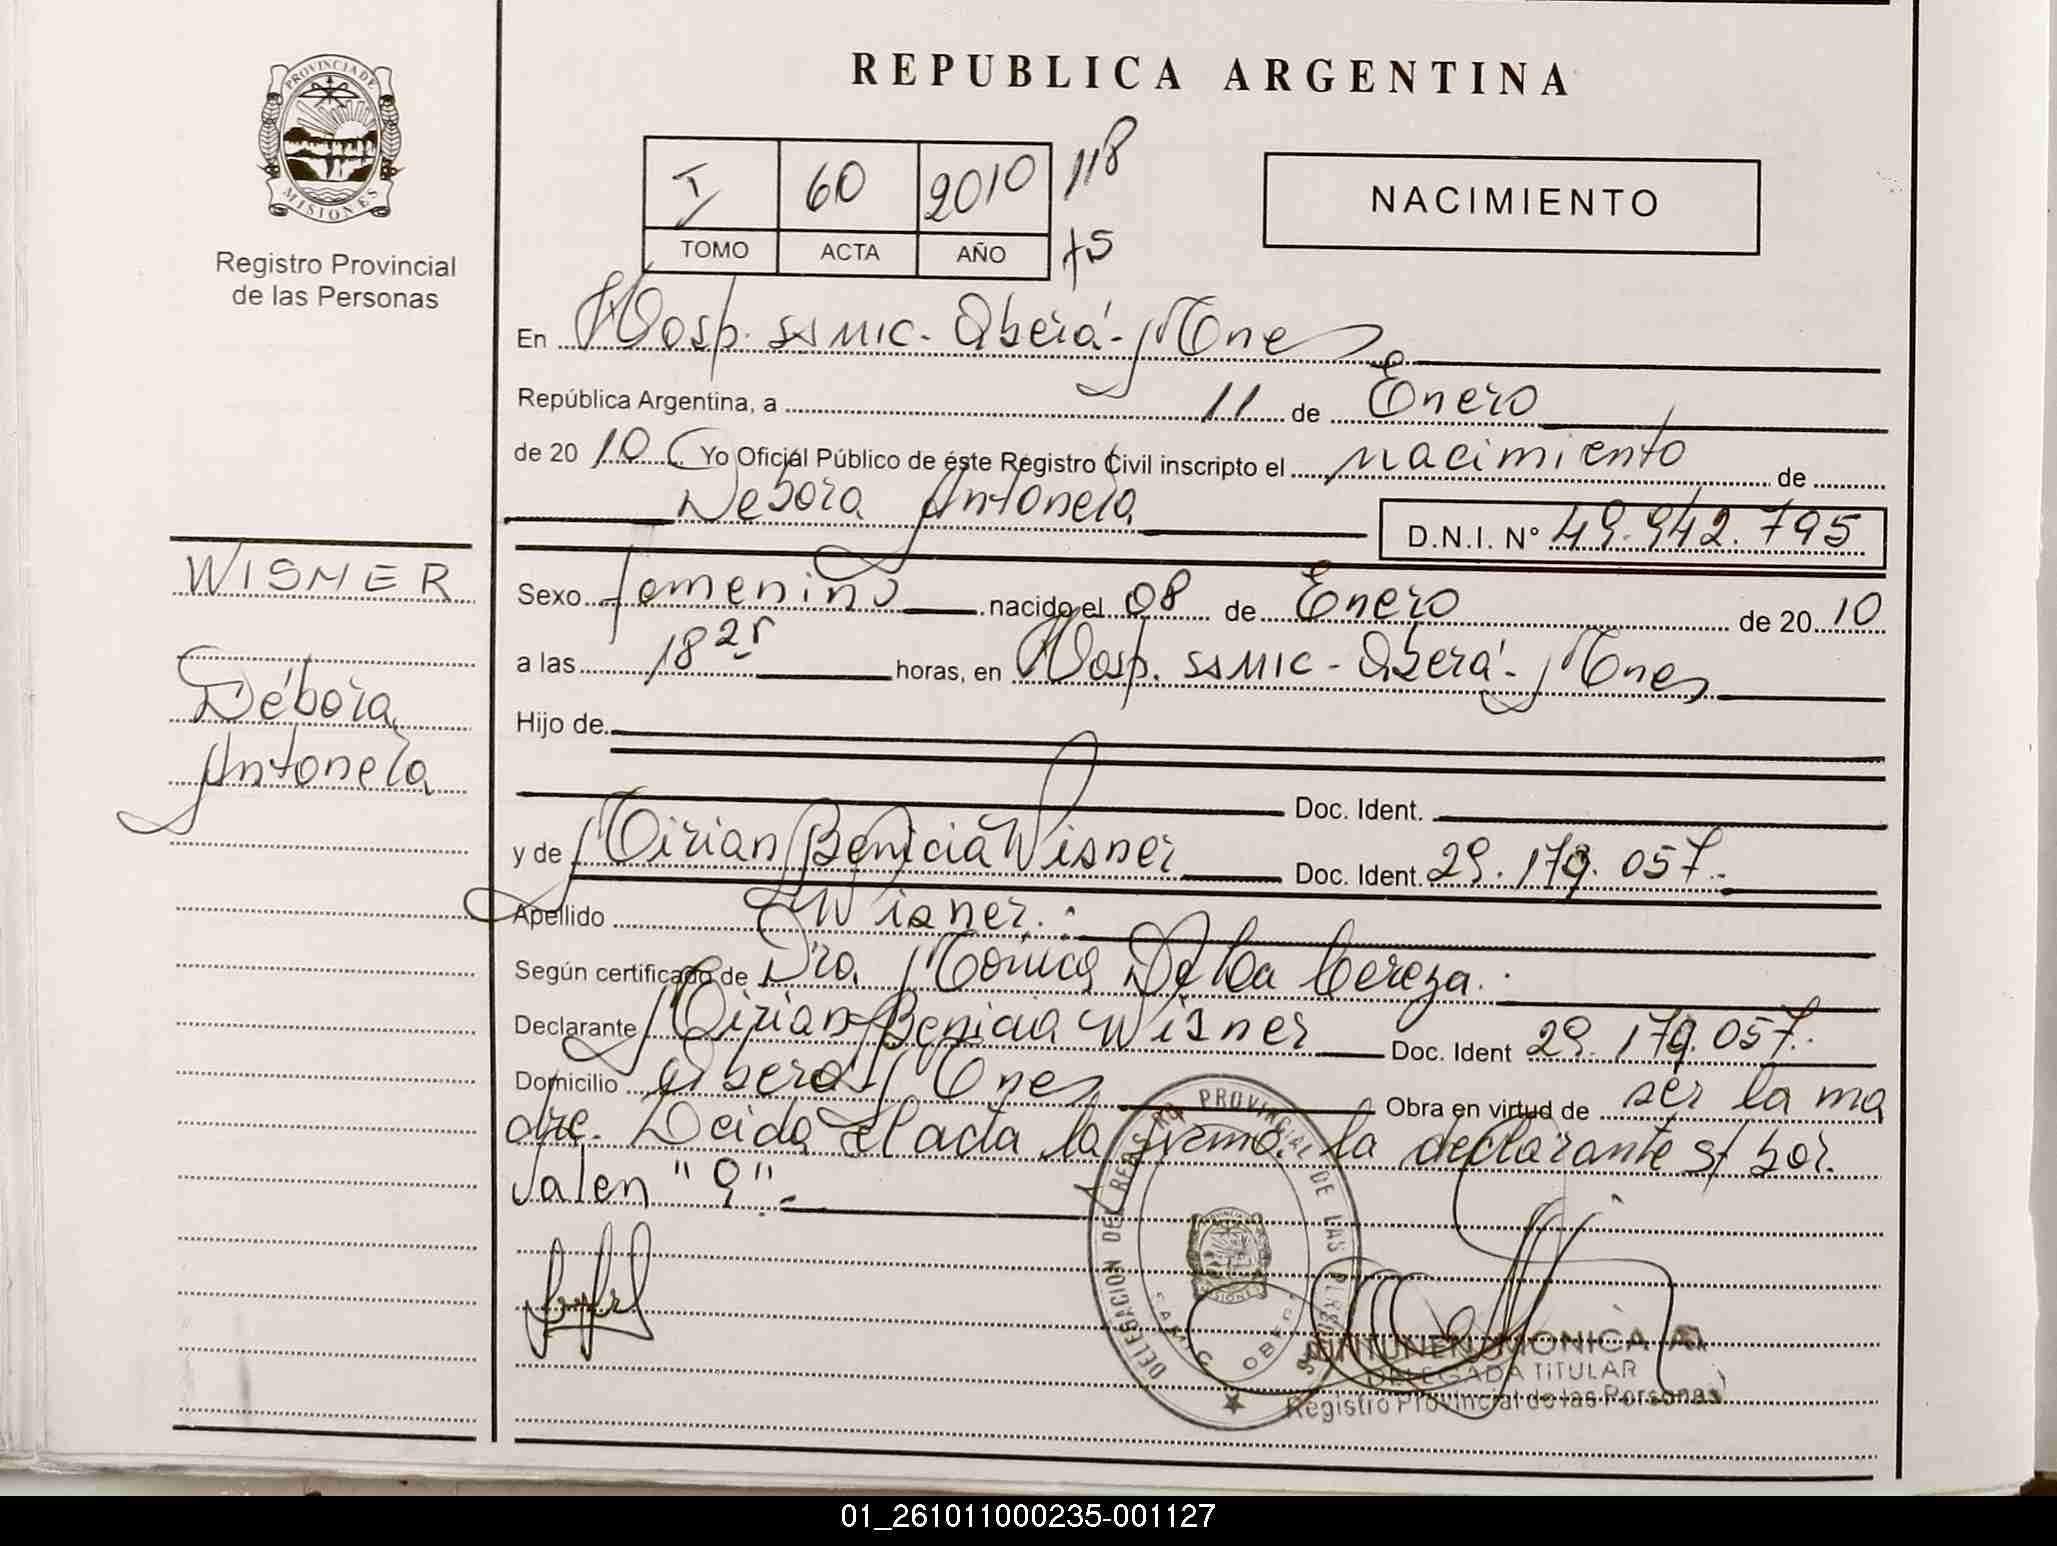 REPUBLICA ARGENTINA
PROVINCIA DE
MISIONES
Registro Provincial
de las Personas
I 60 2010 118
TOMO ACTA AÑO 75
NACIMIENTO
En Hosp. SAMIC - Oberá - Mnes
República Argentina, a 11 de Enero
de 2010 Yo Oficial Público de éste Registro Civil inscripto el nacimiento de
Debora Antonela
D.N.I. N° 49.942.795
WISNER
Débora
Antonela
Sexo femenino nacido el 08 de Enero de 2010
a las 18 25 horas, en Hosp. SAMIC - Oberá - Mnes
Hijo de
Doc. Ident.
y de Mirian Benicia Wisner Doc. Ident. 29.179.057.-
Apellido Wisner.
Según certificado de Dra. Mónica De La Cereza.
Declarante Mirian Benicia Wisner Doc. Ident 29.179.057.-
Domicilio Oberá Mnes Obra en virtud de ser la ma
dre. Leida el acta la firma la declarante s/ bor.
Valen "9".-
DELEGACION DEL REGISTRO PROVINCIAL DE LAS PERSONAS
SAMIC OBERA
MONICA A.
DELEGADA TITULAR
Registro Provincial de las Personas
01_261011000235-001127